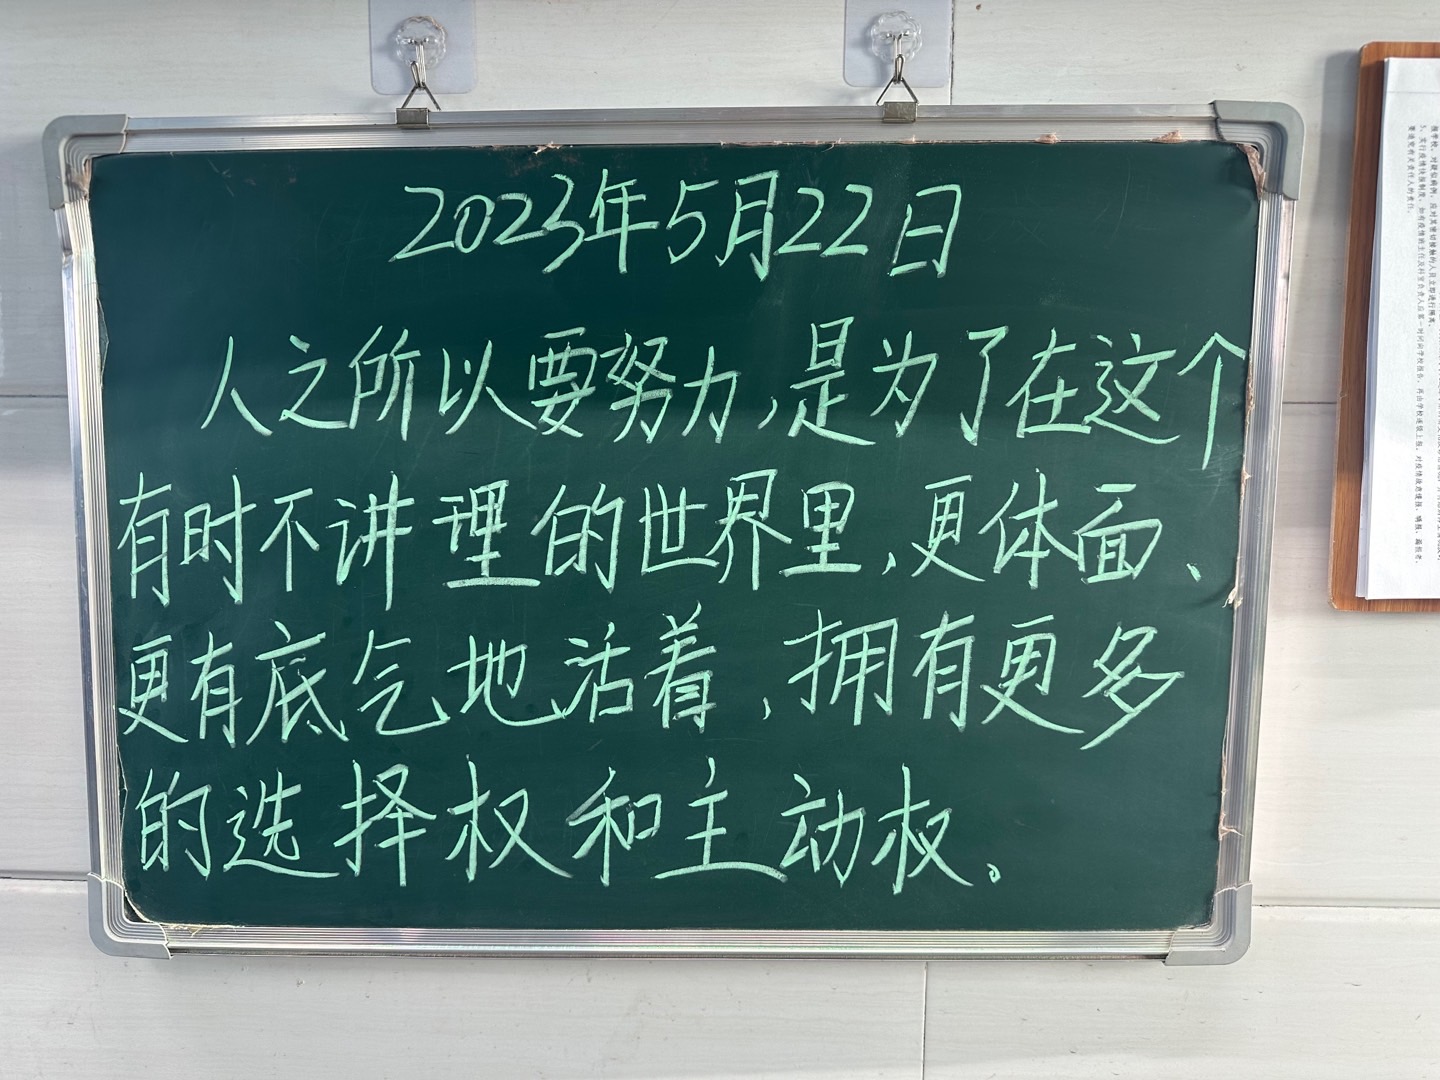 2023年5月22日
人之所以要努力,是为了在这个
有时不讲理的世界里,更体面、
更有底气地活着,拥有更多
的选择权和主动权。